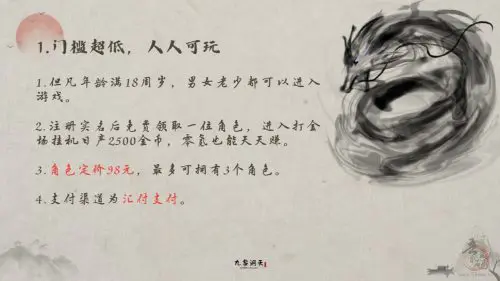 1.门槛超低，人人可玩
1.但凡年龄满18周岁，男女老少都可以进入
游戏。
2.注册实名后免费领取一位角色，进入打金
场挂机日产2500金币，零氪也能天天赚。
3.角色定价98元，最多可拥有3个角色。
4.支付渠道为汇付支付。